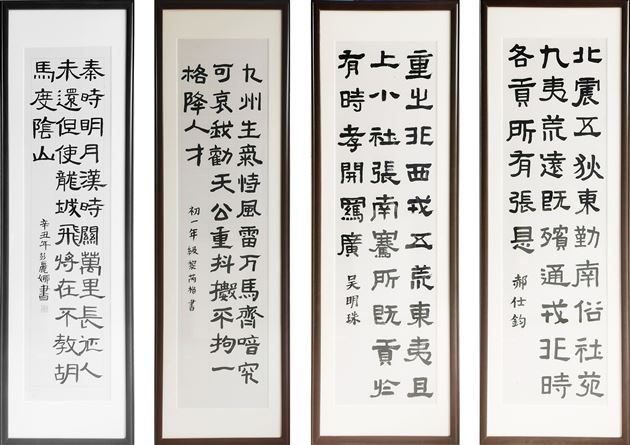 秦時明月漢時關萬里長征人
未還但使龍城飛將在不教胡
馬度陰山
辛丑年彭麗娜書
九州生氣恃風雷万馬齊喑究
可哀我勸天公重抖擻不拘一
格降人才
初一年級黎芮書
重之北西戎五荒東夷且
上小社張南騫所既貢於
有時孝開羈廣
吴明珠
北震五狄東勤南俗社苑
九夷荒遠既殯通戎北時
各貢所有張
郝仕鈞